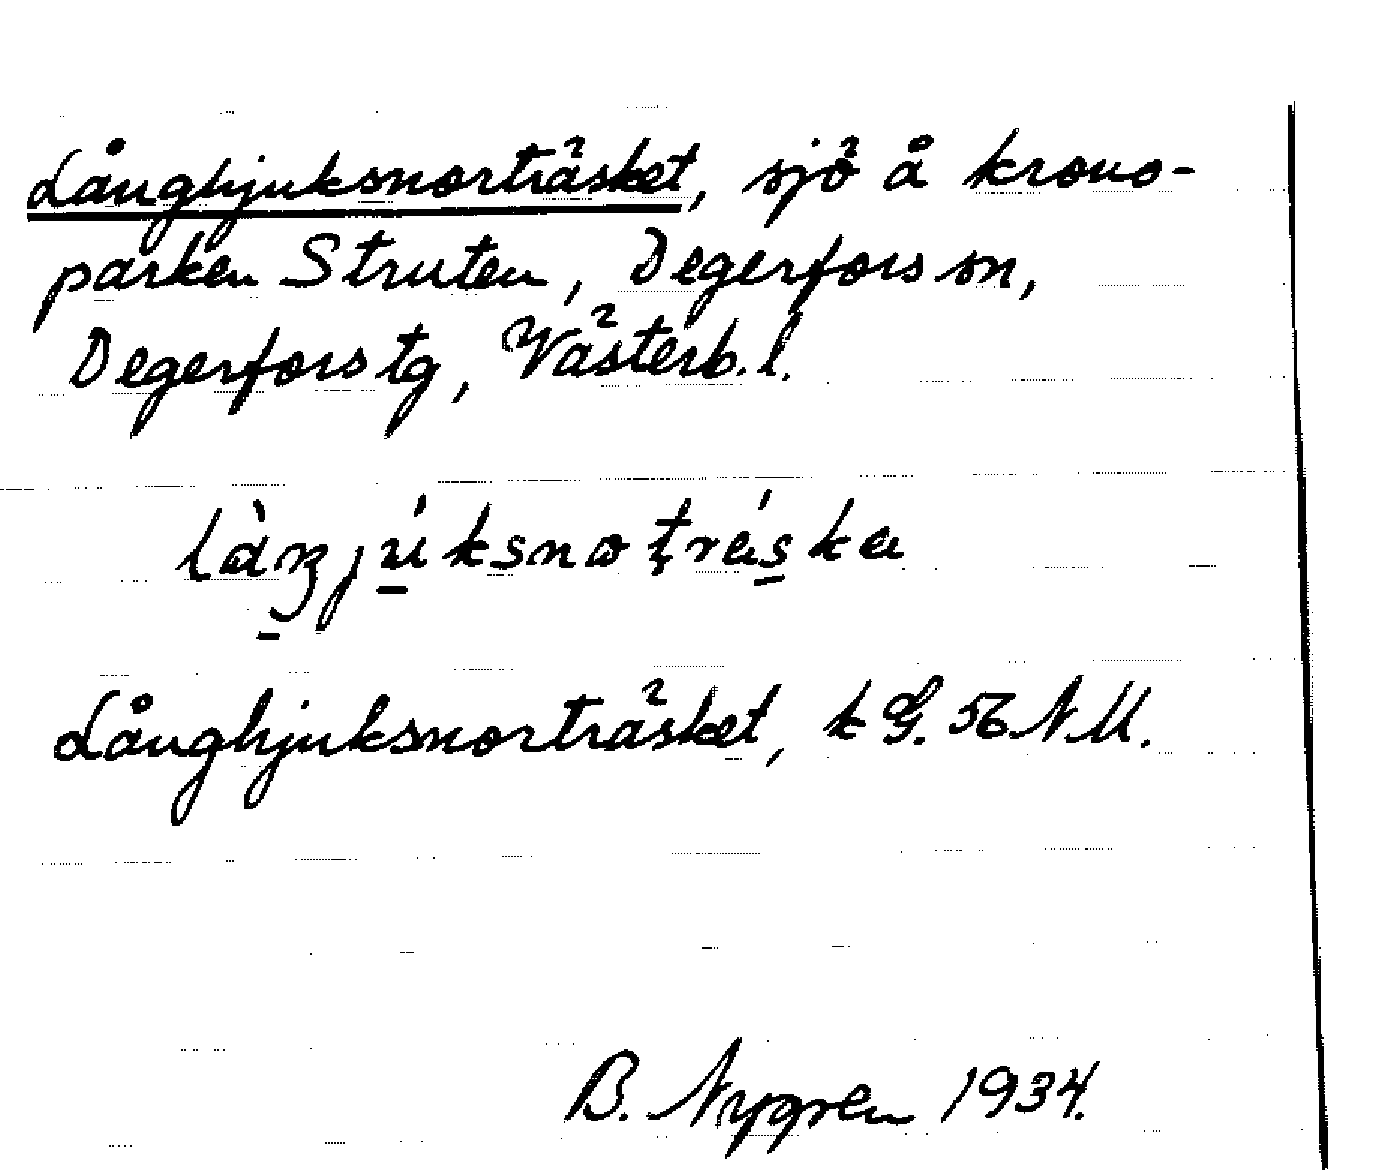 Långhjuksnorträsket, sjö å krono-
parken Struten, Degerfors sn,
Degerfors tg, Västerb. l.
Långhjuksnorträsket, k G. 56 N.V.
B. Nygren 1934.